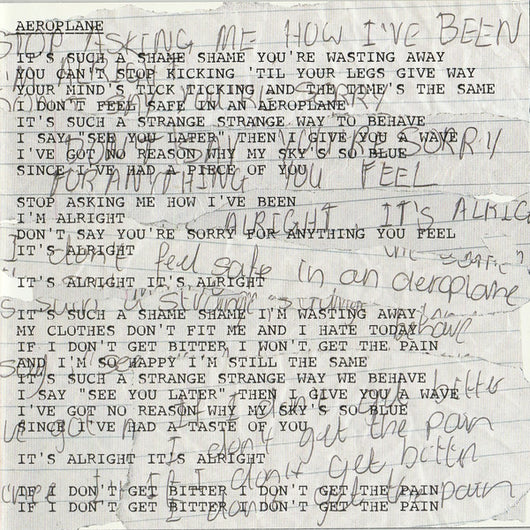 AEROPLANE
STOP ASKING ME HOW I'VE BEEN
IT'S SUCH A SHAME SHAME YOU'RE WASTING AWAY
YOU CAN'T STOP KICKING 'TIL YOUR LEGS GIVE WAY
YOUR MIND'S TICK TICKING AND THE TIME'S THE SAME
SORRY
I DON'T FEEL SAFE IN AN AEROPLANE
IT'S SUCH A STRANGE STRANGE WAY TO BEHAVE
I SAY "SEE YOU LATER" THEN I GIVE YOU A WAVE
DON'T SAY YOU'RE SORRY
I'VE GOT NO REASON WHY MY SKY'S SO BLUE
SINCE I'VE HAD A PIECE OF YOU
FOR ANYTHING YOU FEEL
STOP ASKING ME HOW I'VE BEEN
I'M ALRIGHT
ALRIGHT IT'S ALRIG
DON'T SAY YOU'RE SORRY FOR ANYTHING YOU FEEL
IT'S ALRIGHT
I don't feel safe in an aeroplane
IT'S ALRIGHT IT'S ALRIGHT
IT'S SUCH A SHAME SHAME I'M WASTING AWAY
MY CLOTHES DON'T FIT ME AND I HATE TODAY
IF I DON'T GET BITTER I WON'T GET THE PAIN
AND I'M SO HAPPY I'M STILL THE SAME
IT'S SUCH A STRANGE STRANGE WAY WE BEHAVE
I SAY "SEE YOU LATER" THEN I GIVE YOU A WAVE
bitter
I'VE GOT NO REASON WHY MY SKY'S SO BLUE
SINCE I'VE HAD A TASTE OF YOU
I don't get the pain
IT'S ALRIGHT IT'S ALRIGHT
If I don't get bitter
IF I DON'T GET BITTER I DON'T GET THE PAIN
I don't get the pain
IF I DON'T GET BITTER I DON'T GET THE PAIN